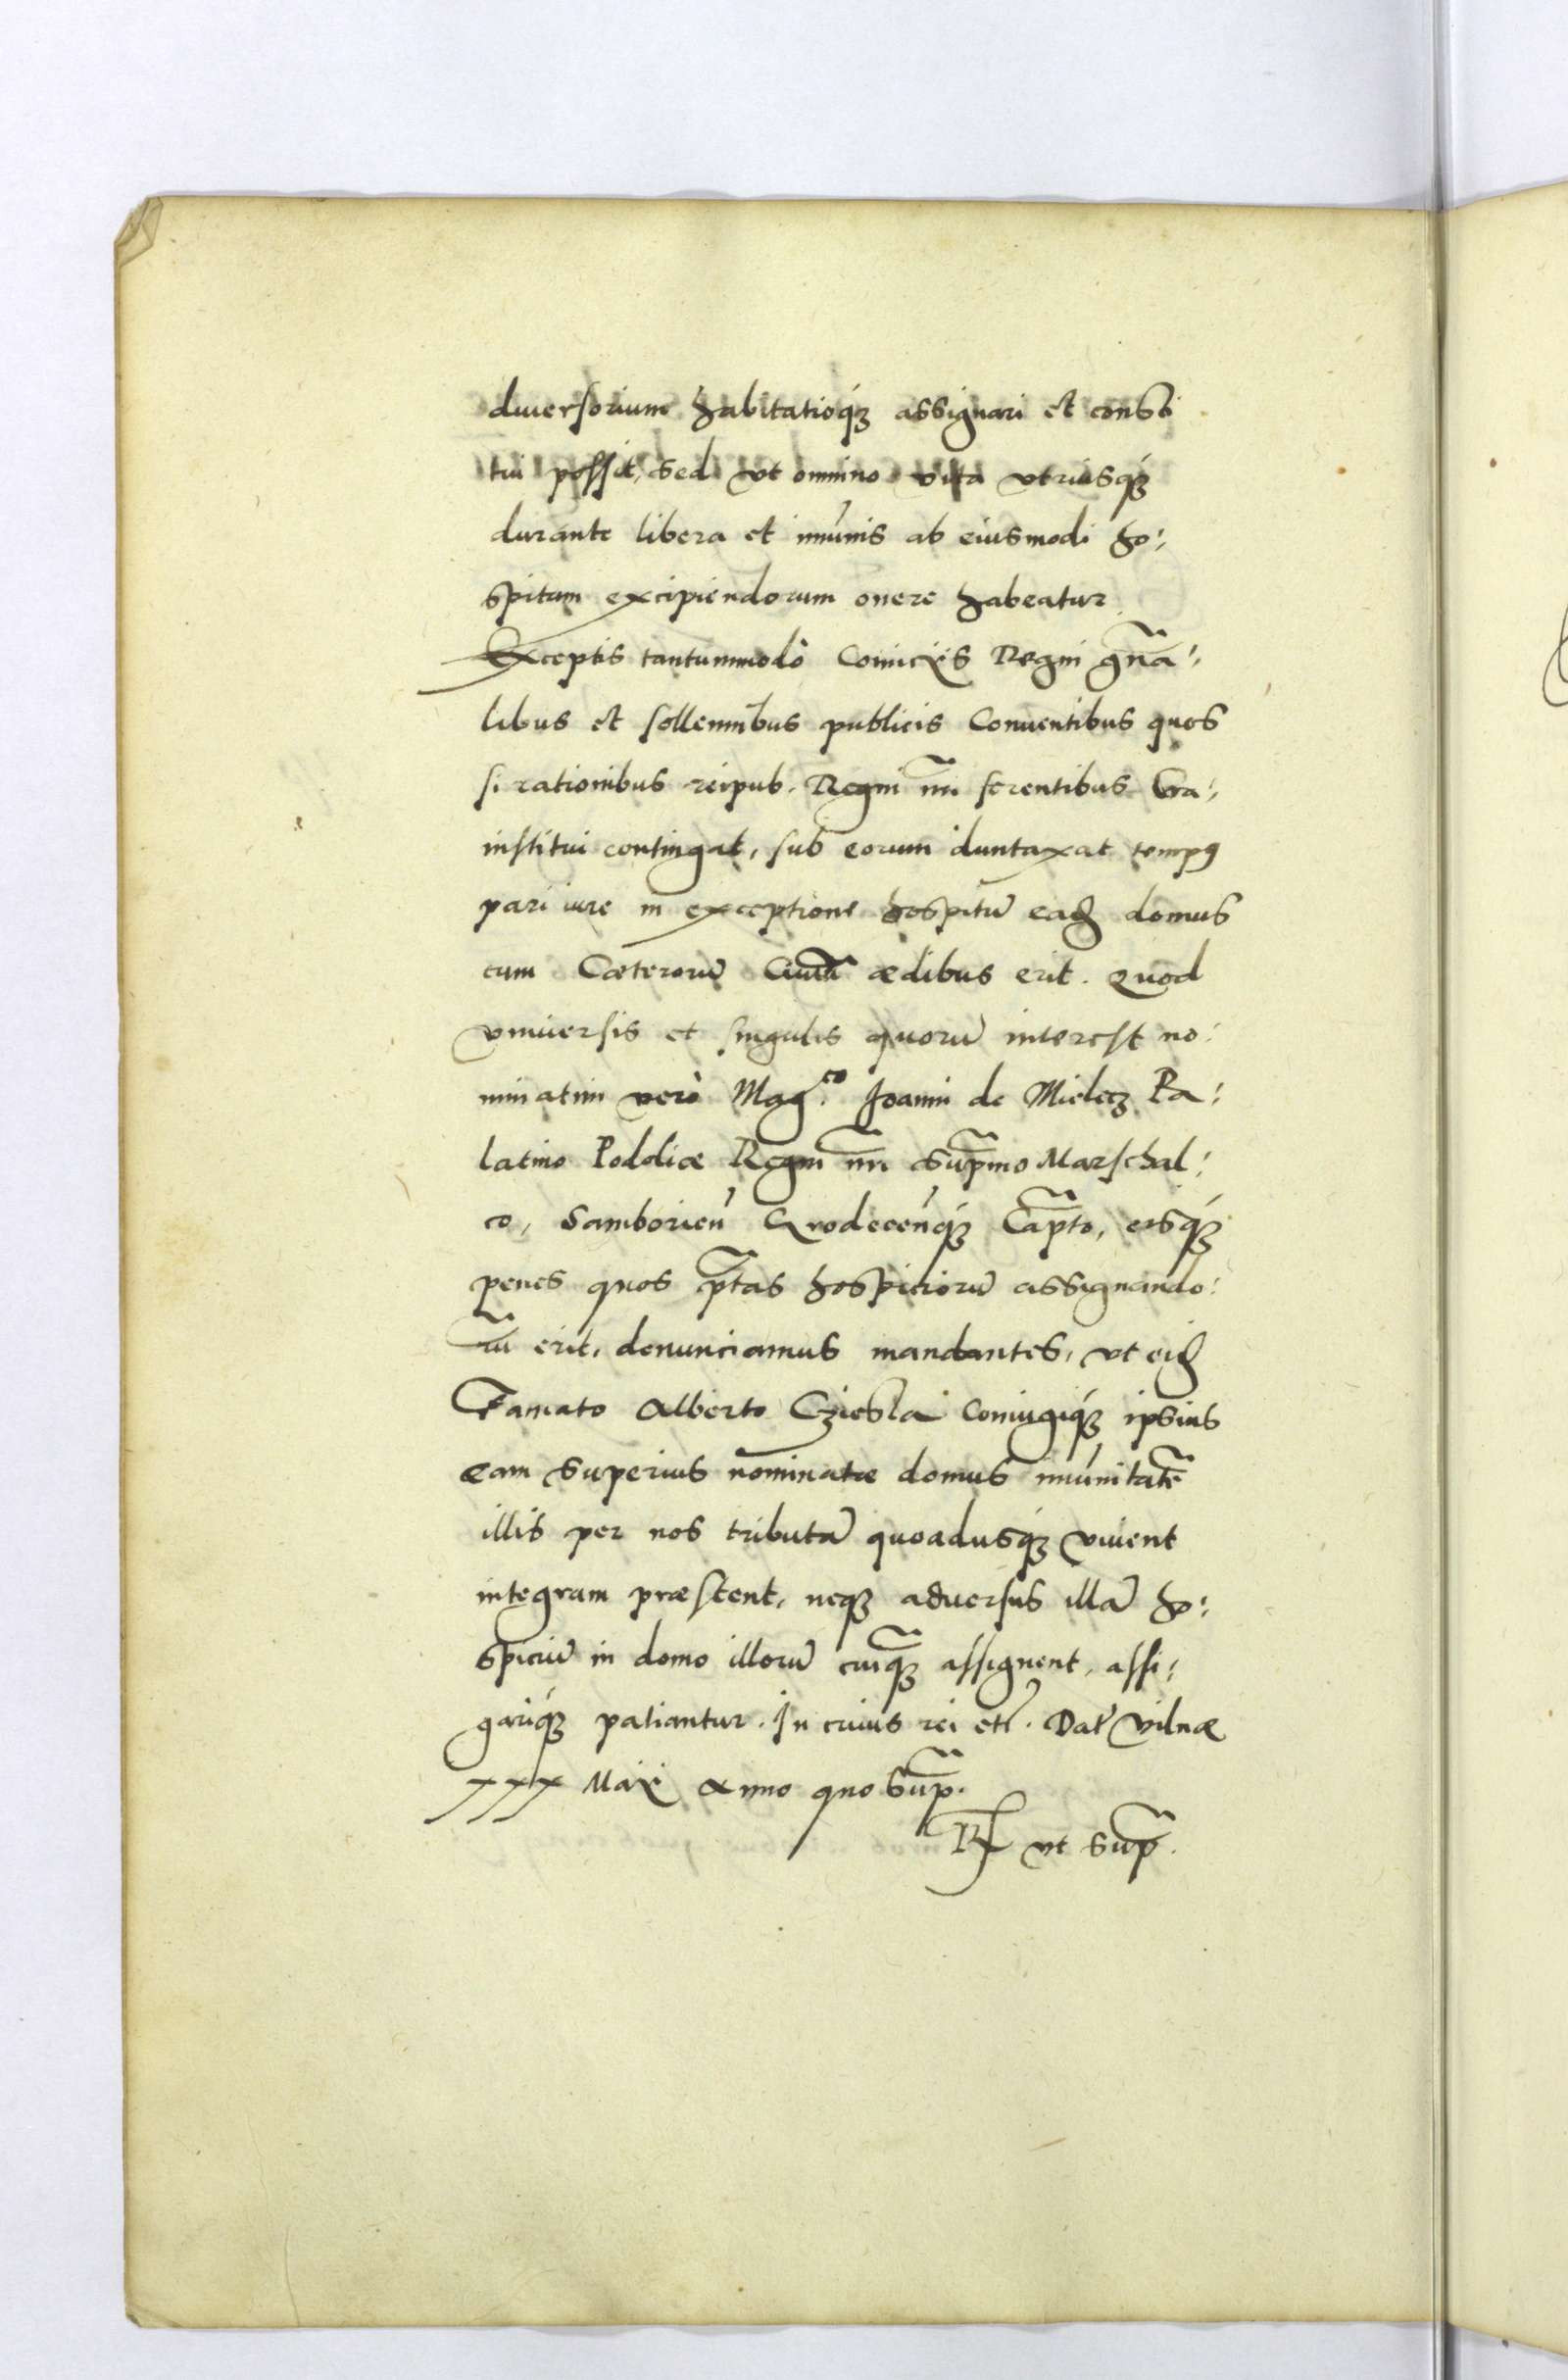 diuersorium habitatioq́ꝫ assignari et consti
tui possit, sed vt omnino vita vtriusq́ꝫ
durante libera et imunis ab eiusmodi ho:
spitum excipiendorum onere habeatur
Exceptis tantummodò Comicijs Regni gn̄a:
libus et sollemnibus publicis Conuentibus quos
si rationibus reipub. Regni nr̄i ferentibus Cra:
institui contingat, sub eorum duntaxat tempꝰ
pari iure in exceptione hospitū eadē domus
cum Cæterorū Ciuiū ædibus erit. Quod
vniuersis et singulis quorū interest no:
minatim verò Mag.co Joanni de Mielecz Pa:
latino Podoliæ Regni nr̄i Sup̄mo Marschal:
co, Samborien̄ Grodecen̄q́ꝫ Cap̄to, eisq́ꝫ
penes quos p̄tas hospiciorū assignando:
rū erit, denunciamus mandantes, vt eidē
Famato Alberto Cziesla Coniugiq́ꝫ ipsius
eam superius nominatæ domus imunitatē
illis per nos tributā quoadusq́ꝫ viuent
integram præstent, neqꝫ aduersus illā ho:
spiciū in domo illorū cuiqꝫ assignent, assi:
gariq́ꝫ patiantur. In cuius rei etc. Dat̄ Vilnæ
XXX Maij Anno quo sup̄.
Rṯ vt sup̄.